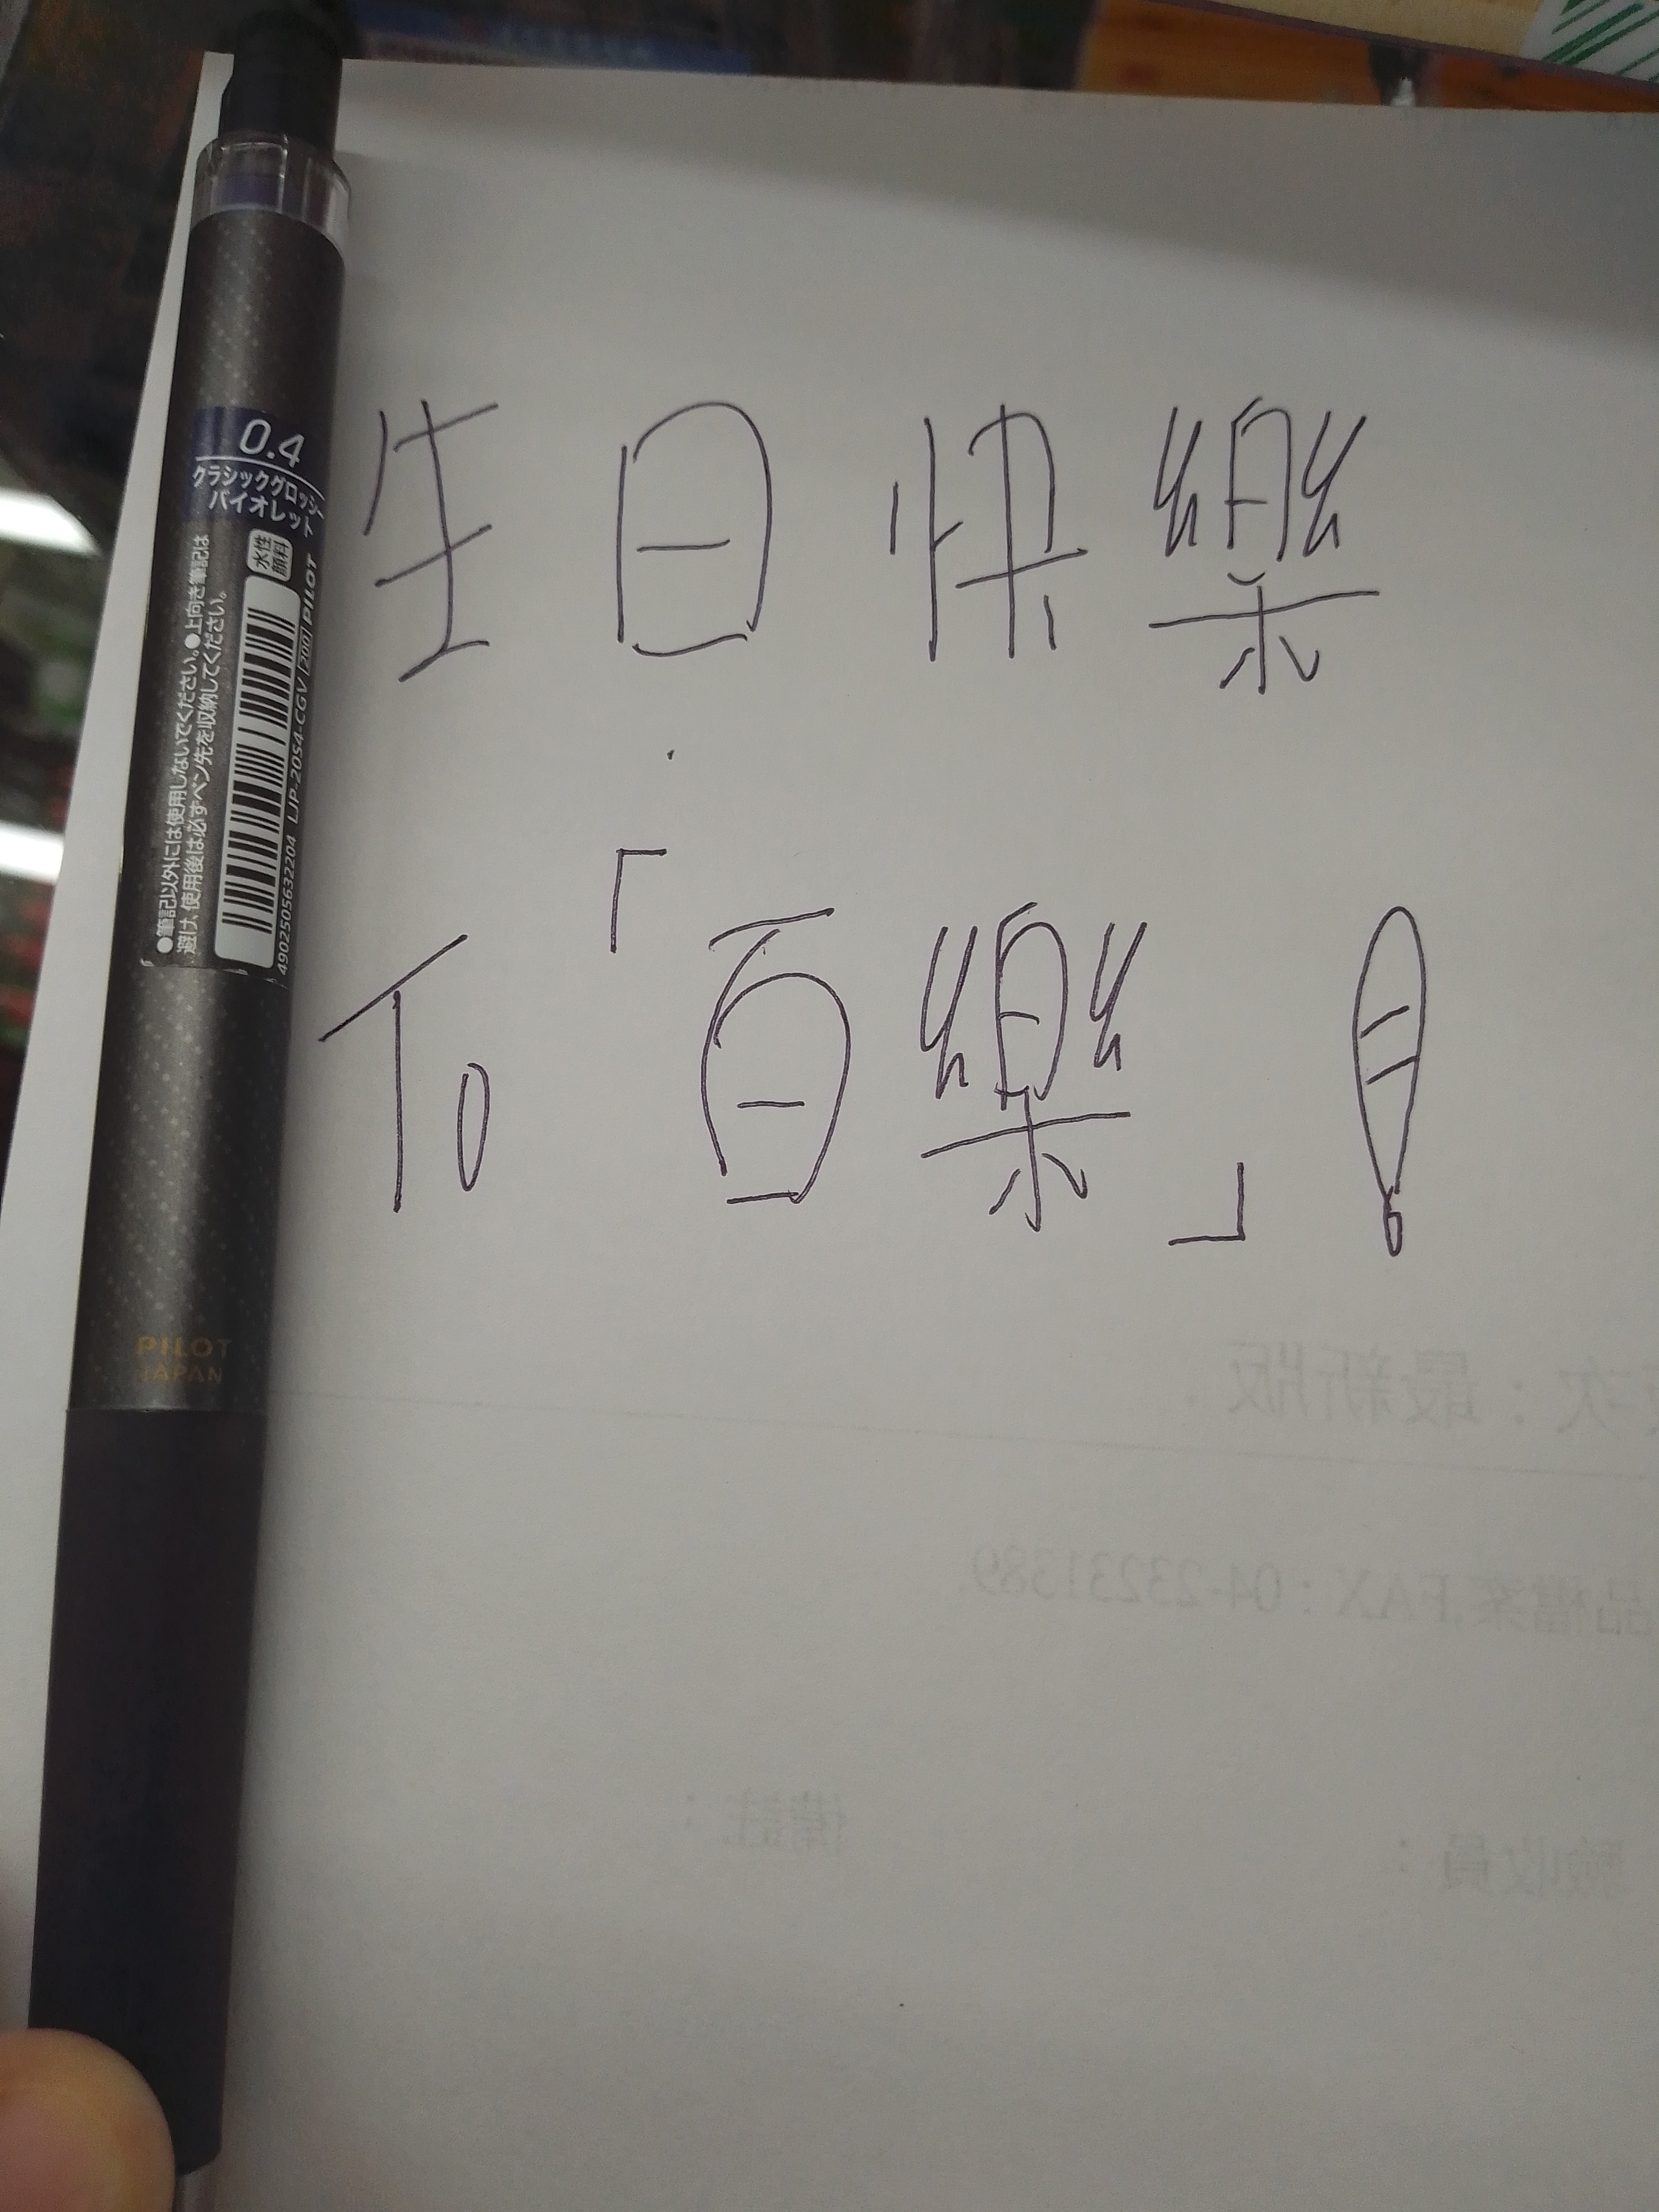 生日快樂
To「百樂」!
0.4
クラシックグロッシー
バイオレット
水性
顔料
●筆記以外には使用しないでください。●上向き筆記は
避け、使用後は必ずペン先を収納してください。
4902505632204 LJP-20S4-CGV 200 PILOT
PILOT
JAPAN
次：最新版
品檔案.FAX：04-23231389.
備註：
驗收員：